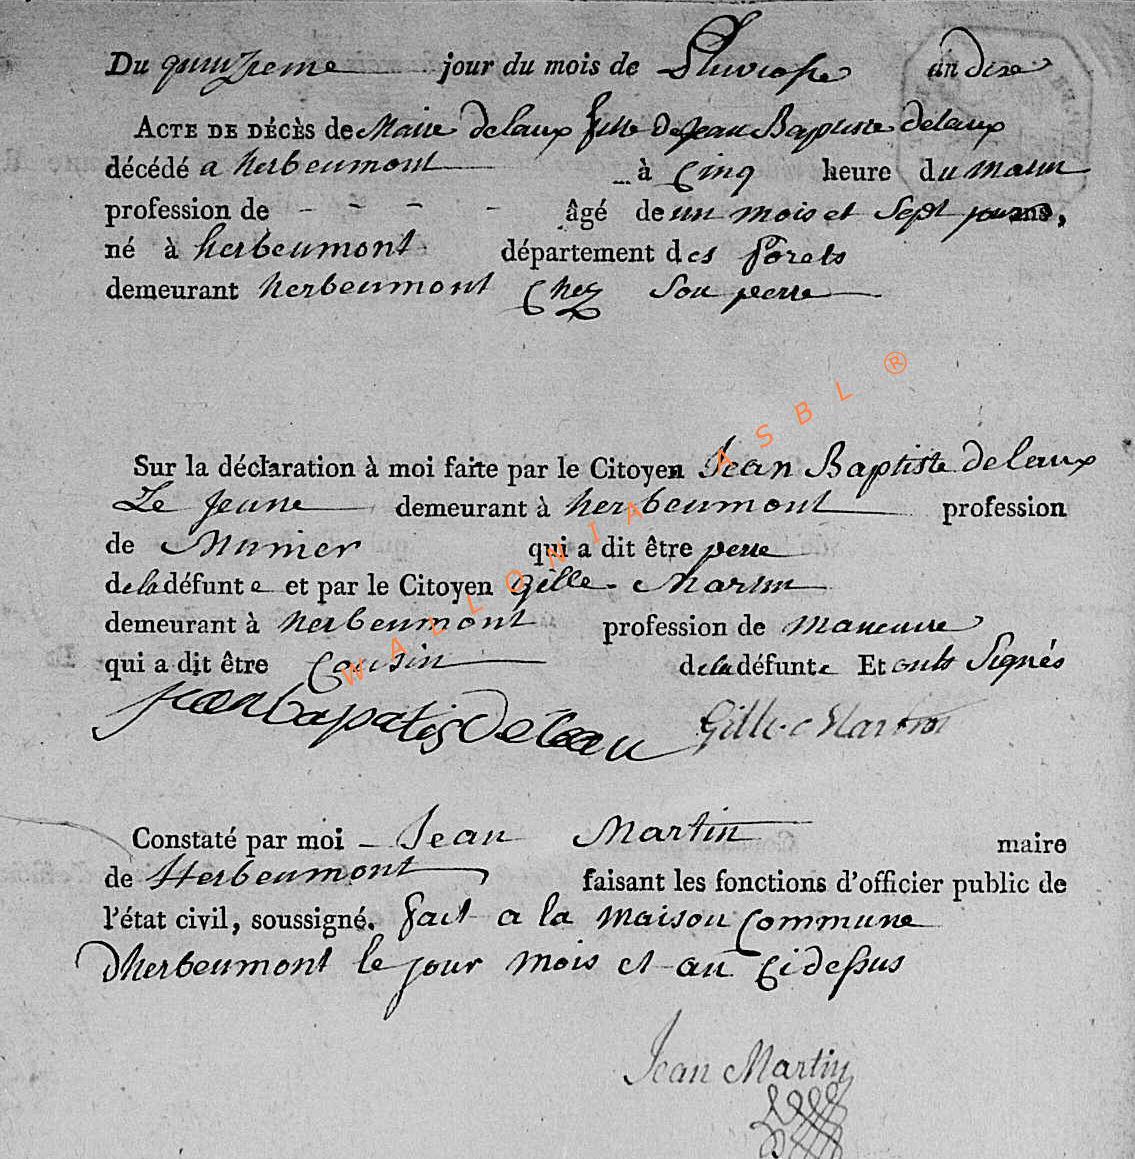 Du quinzieme jour du mois de Pluviose an dixe
ACTE DE DÉCÈS de Marie delaux fille De Jean Baptiste delaux
décédé a herbeumont à Cinq heure du matin
profession de - - - - âgé de un mois et Sept jours,
né à herbeumont département des forets
demeurant herbeumont Chez Son perre
Sur la déclaration à moi faite par le Citoyen Jean Baptiste delaux
Le Jeune demeurant à herbeumont profession
de Munier qui a dit être perre
de la défunte et par le Citoyen Gille Martin
demeurant à herbeumont profession de maneuvre
qui a dit être Cousin de la défunte Et onts Signés
jean bapatis Delau Gille Martin
Constaté par moi - Jean Martin maire
de Herbeumont faisant les fonctions d'officier public de
l'état civil, soussigné. fait a la maison Commune
dherbeumont le jour mois et an Cidessus
Jean Martin
WALLONIA ASBL ®